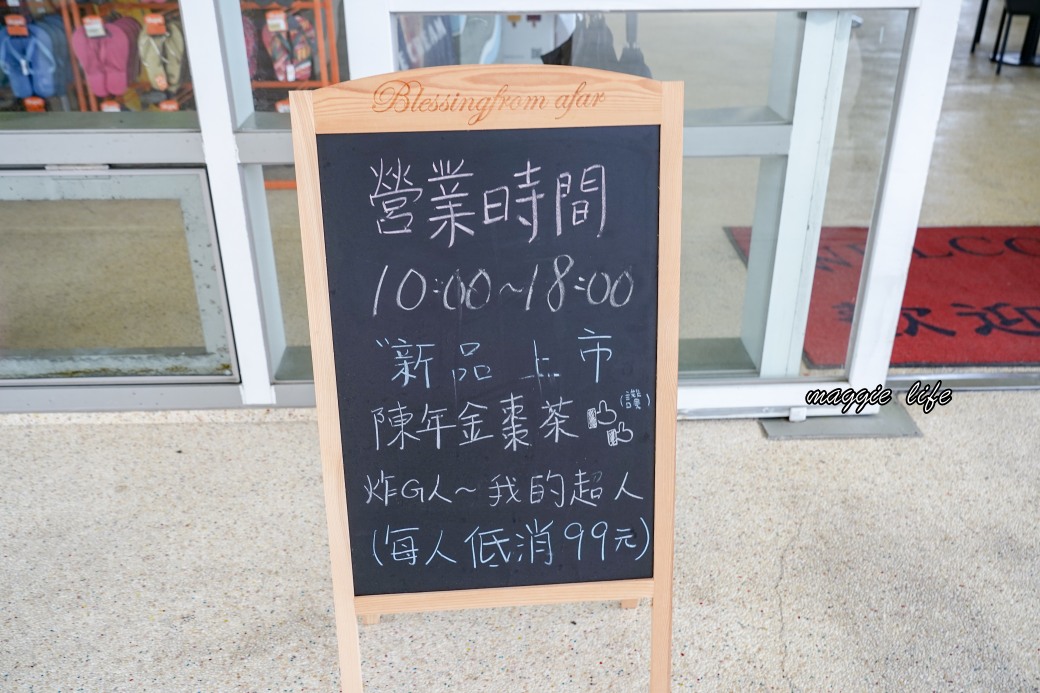 Blessingfrom afar
營業時間
10:00~18:00
新品上市
陳年金棗茶 (讚)
炸G人~我的超人
(每人低消99元)
WELCO
歡迎
maggie life